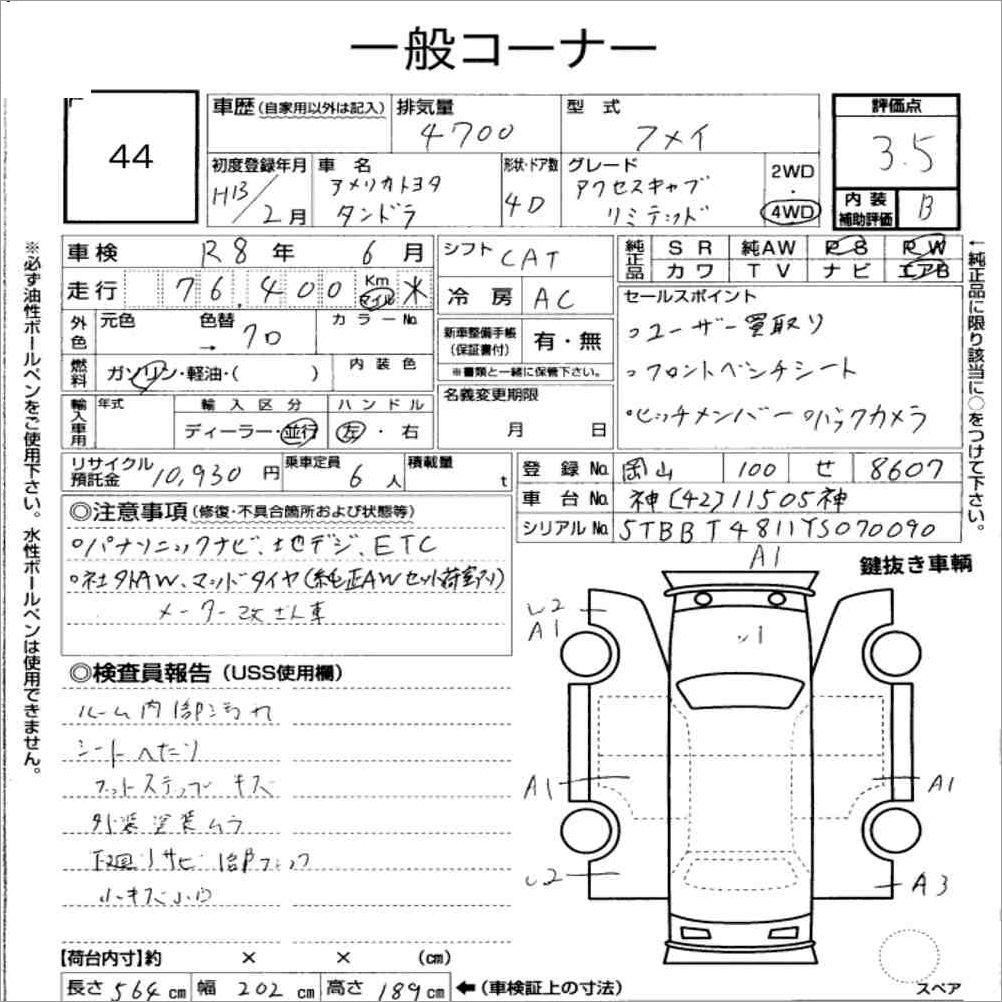 一般コーナー
44
車歴(自家用以外は記入)
排気量
4700
型式
フメイ
評価点
3.5
内装補助評価 B
初度登録年月
H13/2月
車名
アメリカトヨタ
タンドラ
形状・ドア数
4D
グレード
アクセスキャブ
リミテッド
2WD
・
4WD
車検 R8年 6月
走行 76,400 Km マイル
外色 元色 色替 → 70 カラーNo.
燃料 ガソリン・軽油・( ) 内装色
輸入車用 年式 輸入区分 ディーラー・並行 ハンドル 左・右
シフト CAT
冷房 AC
新車整備手帳(保証書付) 有・無
※書類と一緒に保管下さい。
名義変更期限
月 日
純正品 SR 純AW PS PW
カワ TV ナビ エアB
セールスポイント
○ユーザー買取り
○フロントベンチシート
○ヒッチメンバー ○バックカメラ
リサイクル預託金 10,930円
乗車定員 6人
積載量 t
登録No. 岡山 100 せ 8607
車台No. 神[42]11505神
シリアルNo. 5TBBT4811YS070090
◎注意事項(修復・不具合箇所および状態等)
○パナソニックナビ、地デジ、ETC
○社外AW、マッドタイヤ(純正AWセット荷室あり)
メーター改ざん車
◎検査員報告(USS使用欄)
ルーム内
シートヘたり
フットステップ キズ
外装塗装ムラ
下廻りサビ
小キズ小凹
【荷台内寸】約 × × (cm)
長さ 564cm 幅 202cm 高さ 189cm ←(車検証上の寸法)
※必ず油性ボールペンをご使用下さい。水性ボールペンは使用できません。
←純正品に限り該当に○をつけて下さい。
鍵抜き車輌
A1
A1
A1
A1
A3
スペア